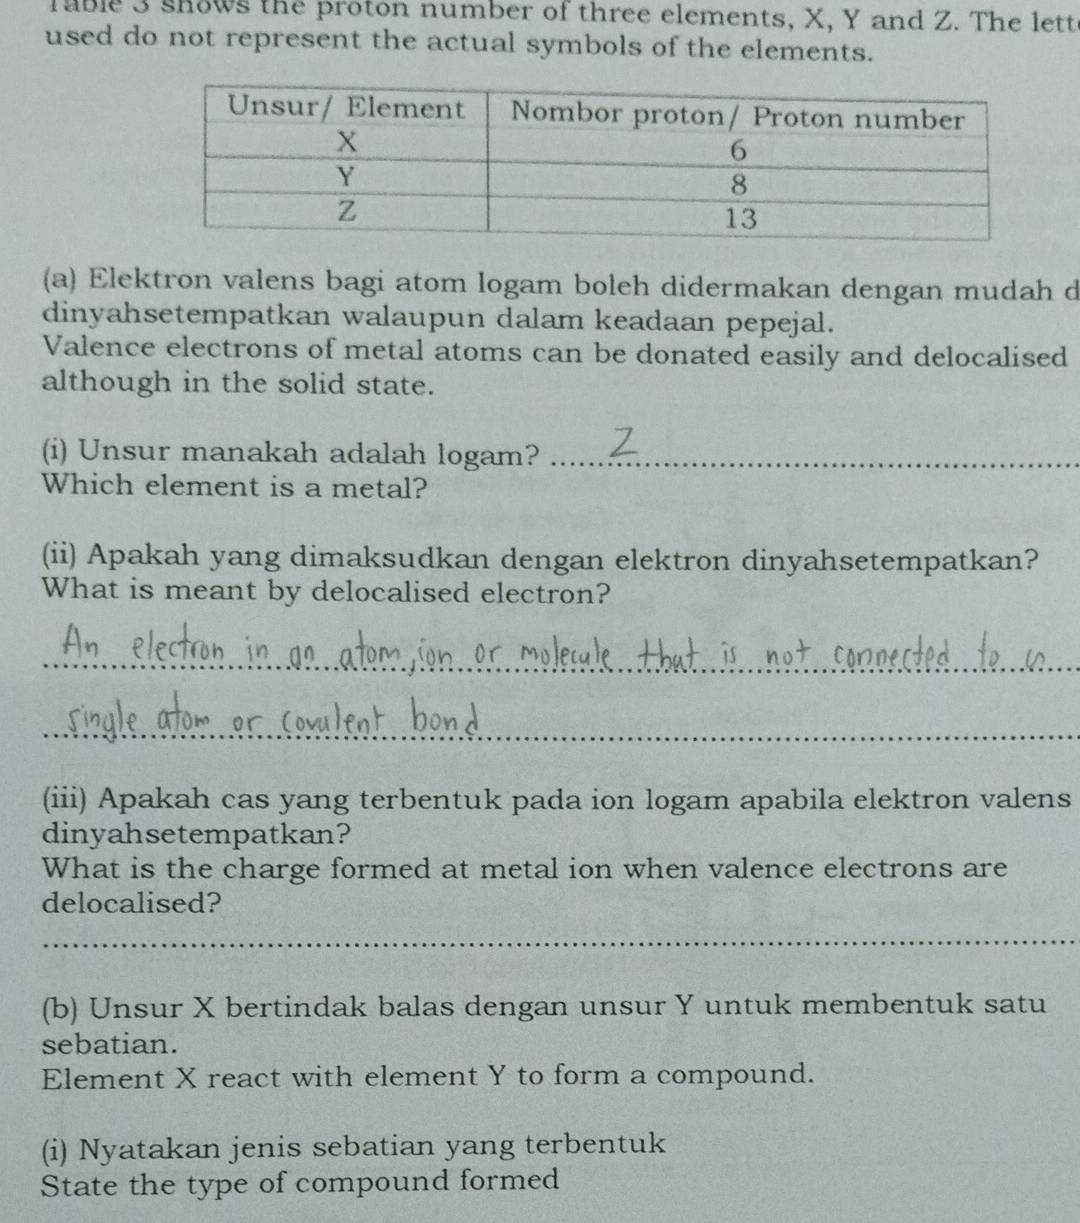 Table 3 shows the proton number of three elements, X, Y and Z. The lett
used do not represent the actual symbols of the elements.
Unsur/ Element Nombor proton/ Proton number
X 6
Y 8
Z 13
(a) Elektron valens bagi atom logam boleh didermakan dengan mudah d
dinyahsetempatkan walaupun dalam keadaan pepejal.
Valence electrons of metal atoms can be donated easily and delocalised
although in the solid state.
(i) Unsur manakah adalah logam? Z
Which element is a metal?
(ii) Apakah yang dimaksudkan dengan elektron dinyahsetempatkan?
What is meant by delocalised electron?
An electron in an atom, ion or molecule that is not connected to a
single atom or covalent bond
(iii) Apakah cas yang terbentuk pada ion logam apabila elektron valens
dinyahsetempatkan?
What is the charge formed at metal ion when valence electrons are
delocalised?
(b) Unsur X bertindak balas dengan unsur Y untuk membentuk satu
sebatian.
Element X react with element Y to form a compound.
(i) Nyatakan jenis sebatian yang terbentuk
State the type of compound formed